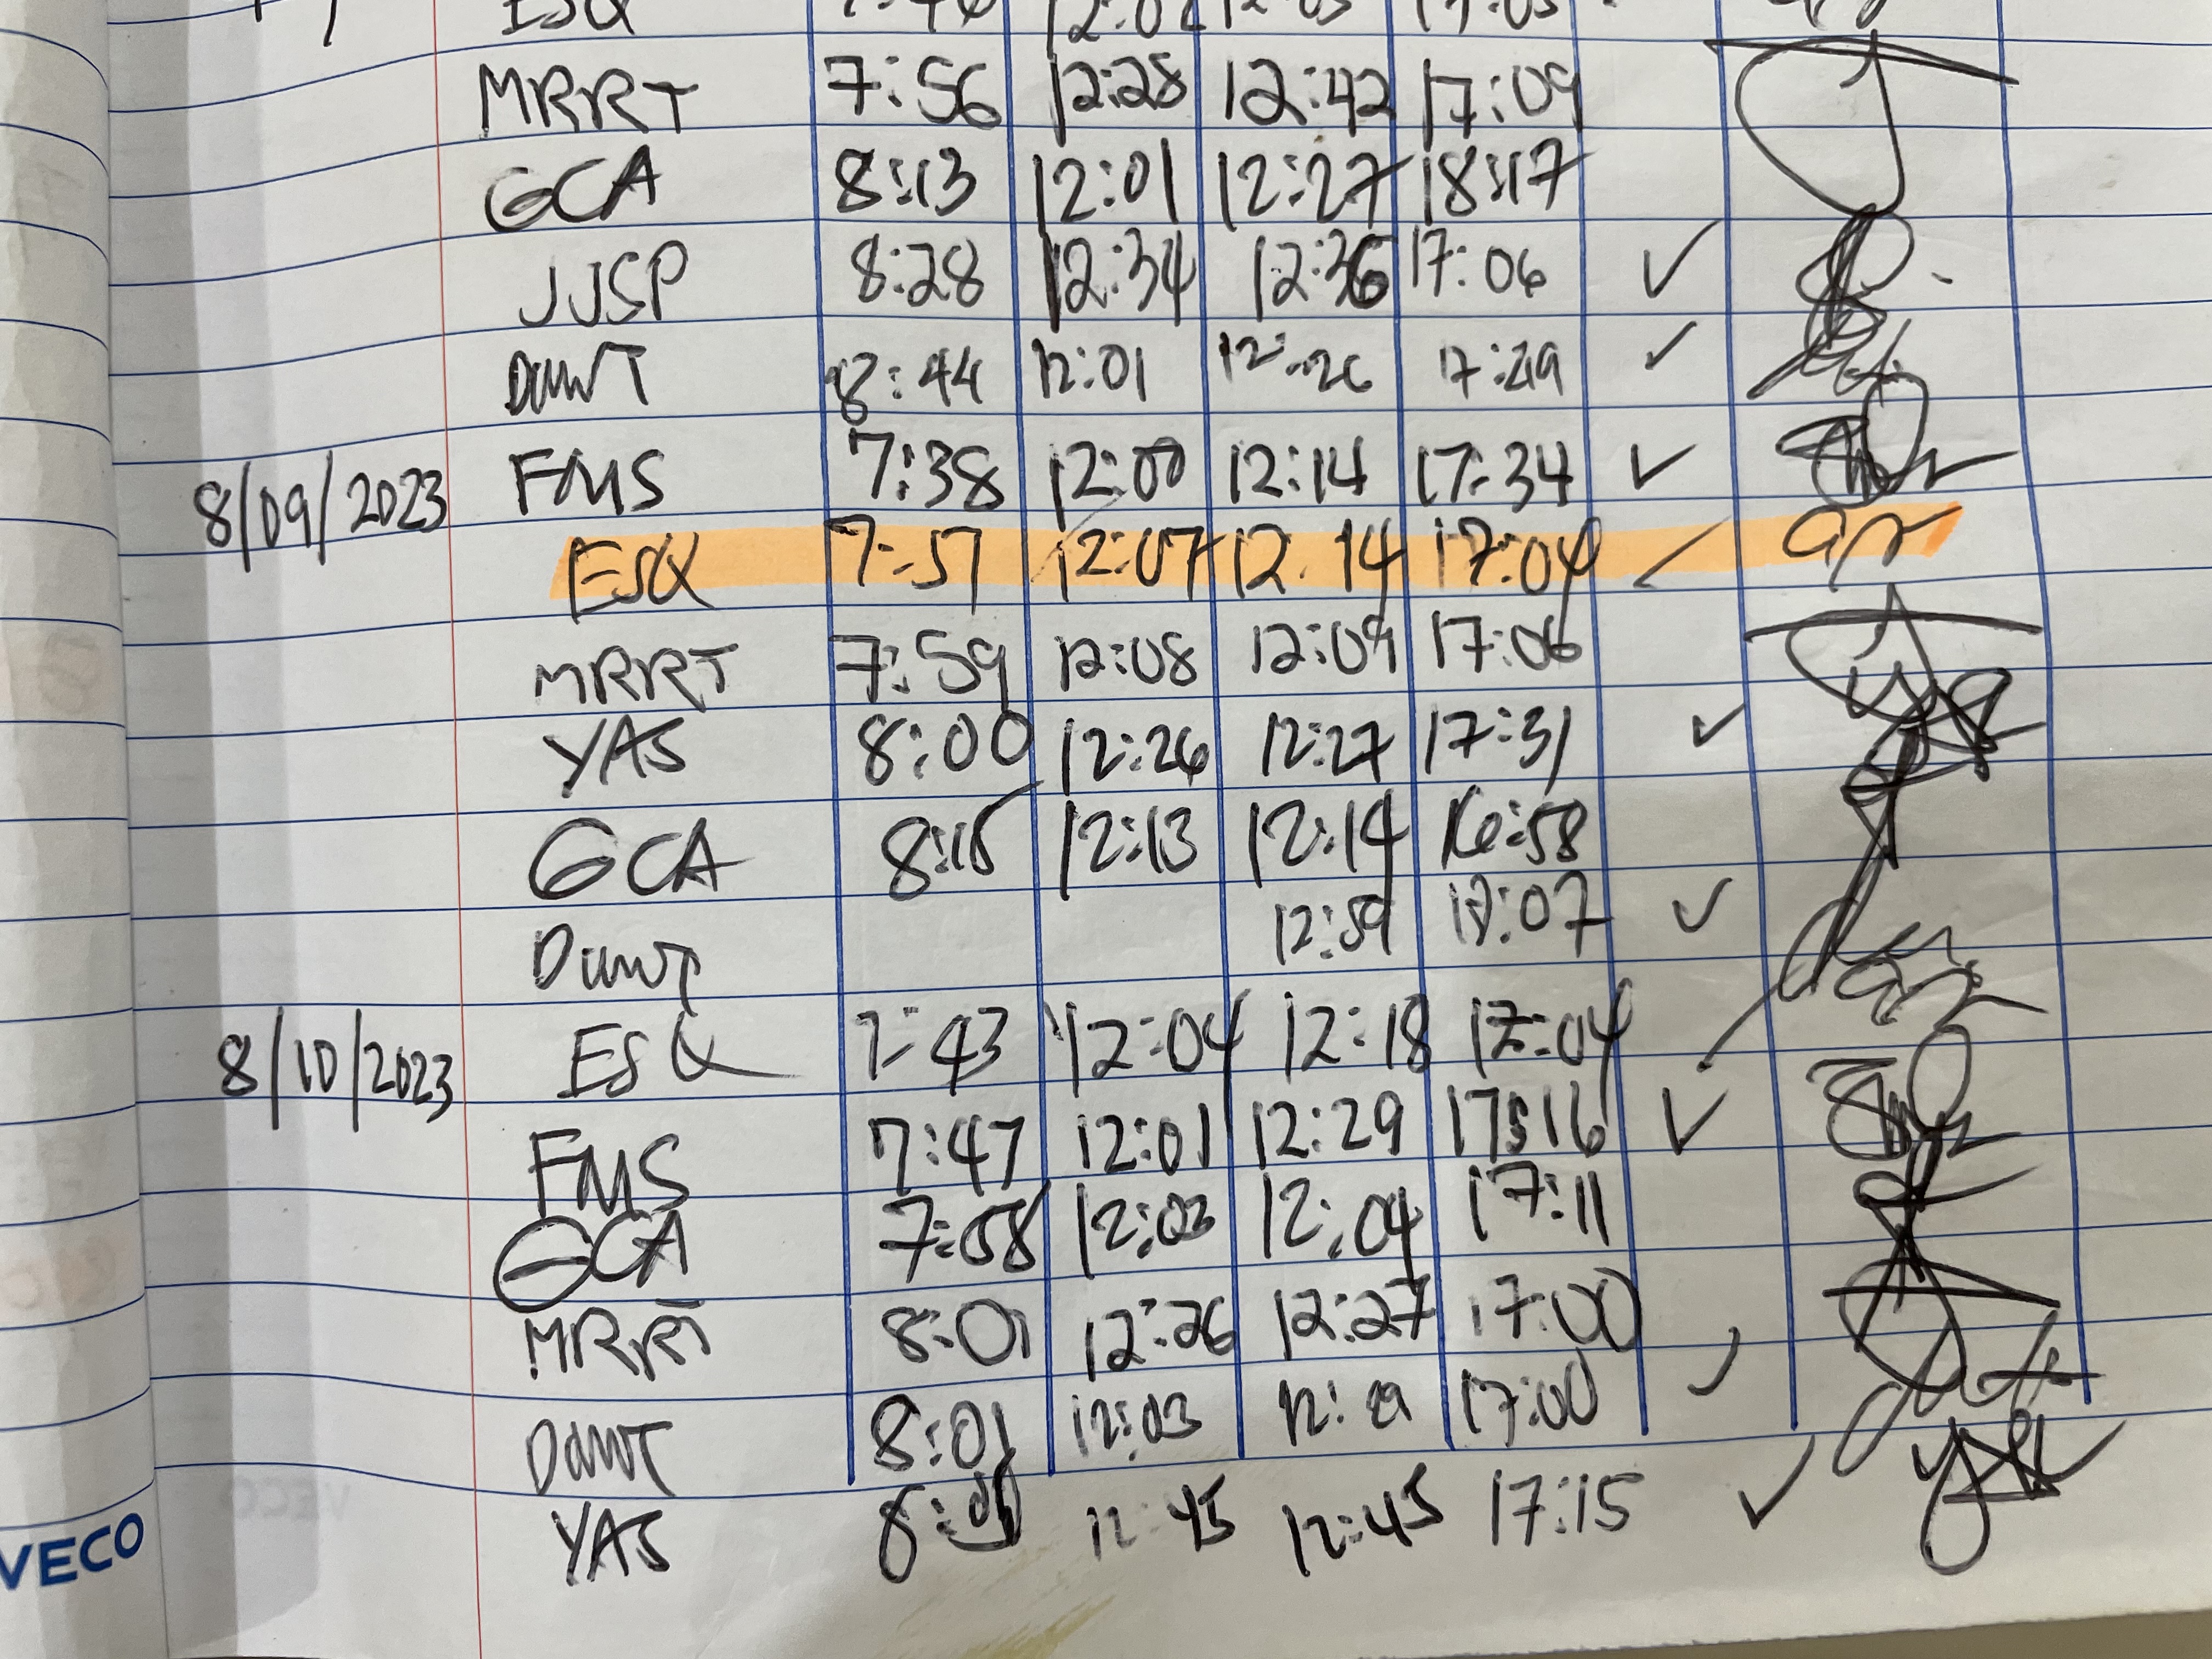 ESQ 12:02
MRRT 7:56 12:28 12:42 17:09
GCA 8:13 12:01 12:27 18:17
JJSP 8:28 12:34 12:36 17:06 ✓
8:44 12:01 12:26 17:29 ✓
8/09/2023 FMS 7:38 12:00 12:14 17:34 ✓
ESQ 7:57 12:07 12:14 17:04
MRRT 7:59 12:08 12:09 17:06
YAS 8:00 12:26 12:27 17:31 ✓
GCA 8:15 12:13 12:14 16:58
12:59 ✓
8/10/2023 ESQ 7:43 12:04 12:18 17:04
FMS 7:47 12:01 12:29 17:16 ✓
GCA 7:58 12:03 12:04 17:11
MRRT 8:01 12:26 12:27 17:00
8:01 12:03 17:00
YAS 12:45 12:45 17:15 ✓
VECO